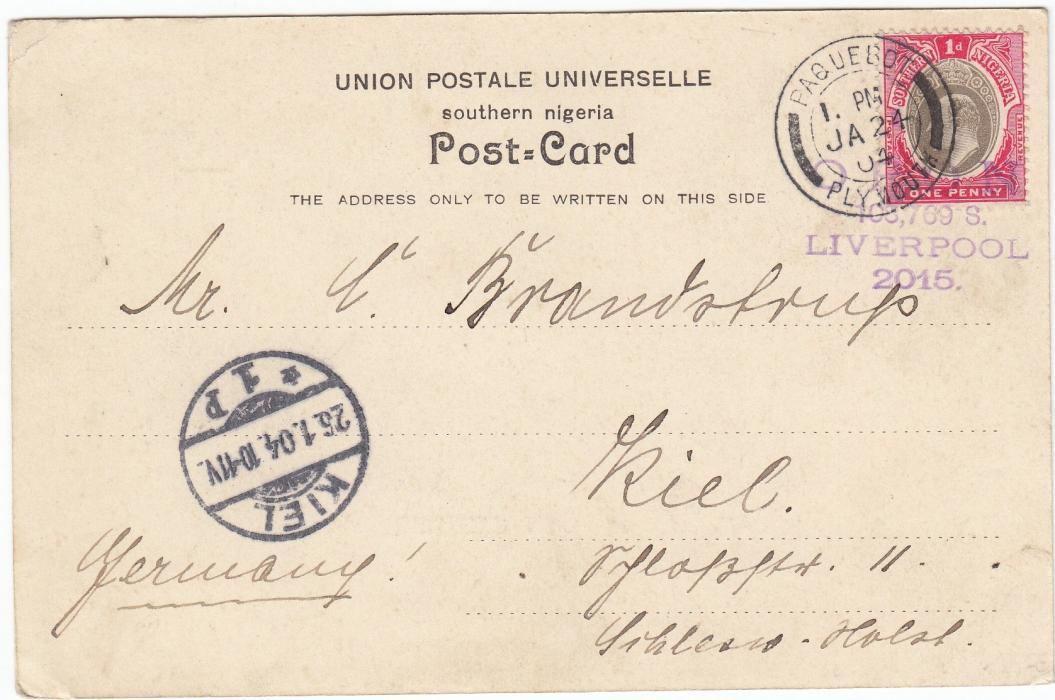 UNION POSTALE UNIVERSELLE
southern nigeria
Post=Card
THE ADDRESS ONLY TO BE WRITTEN ON THIS SIDE
SOUTHERN 1d NIGERIA
REVENUE
ONE PENNY
PAQUEBOT
1. PM
JA 24
04
PLYMOUTH
769 S.
LIVERPOOL
2015.
Mr. C. Brandstrup
* 1 P
26.1.04. 10-11V.
KIEL
Kiel.
Germany!
Schloßstr. 11.
Schlesw-Holst.